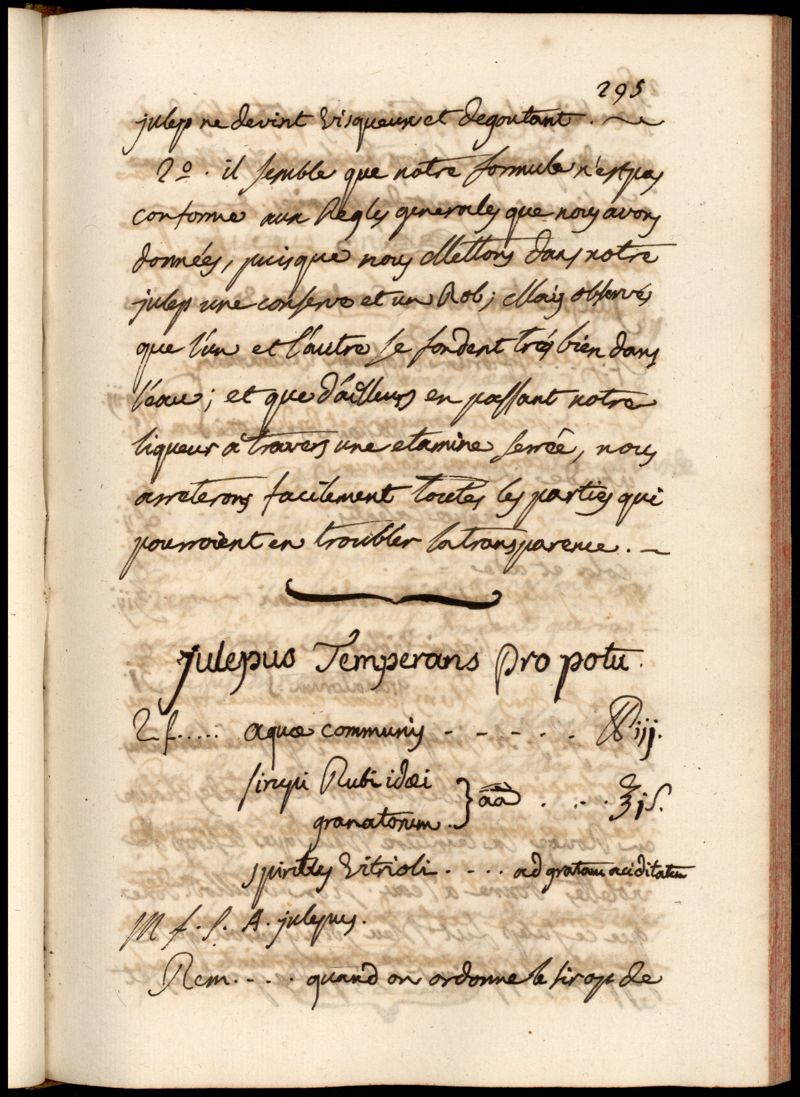 295
julep ne devint Visqueux et degoutant.
2º. il semble que notre formule n'est pas
conforme aux Regles generales que nous avons
données, puisque nous Mettons dans notre
julep une conserve et un Rob; Mais observés
que l'un et l'autre se fondent très bien dans
l'eau; et que d'ailleurs en passant notre
liqueur à travers une etamine serrée, nous
arreterons facilement toutes les parties qui
pourroient en troubler la transparence.
julepus Temperans Pro potu.
♃ f..... aquæ communis - - - - . . ℔iij.
sirupi Rubi idæi
granatorum. } āā . . - . ℥jſ.
spiritus Vitrioli . - . . ad gratam aciditatem
M f. S. A. julepus.
Rem. . . . . quand on ordonne le sirop de